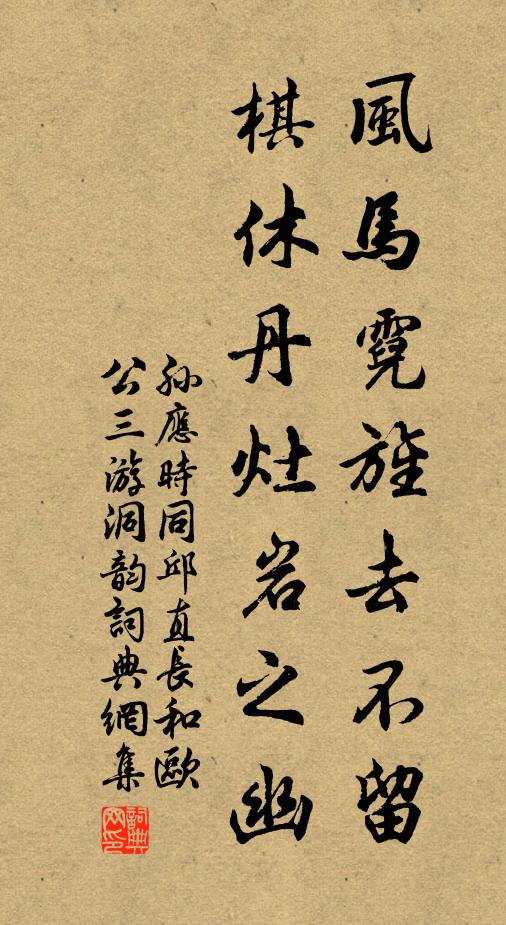 風馬霓旌去不留
棋休丹灶岩之幽
孙應時同邱直長和歐
公三游洞韵詞典網集
詞典网印